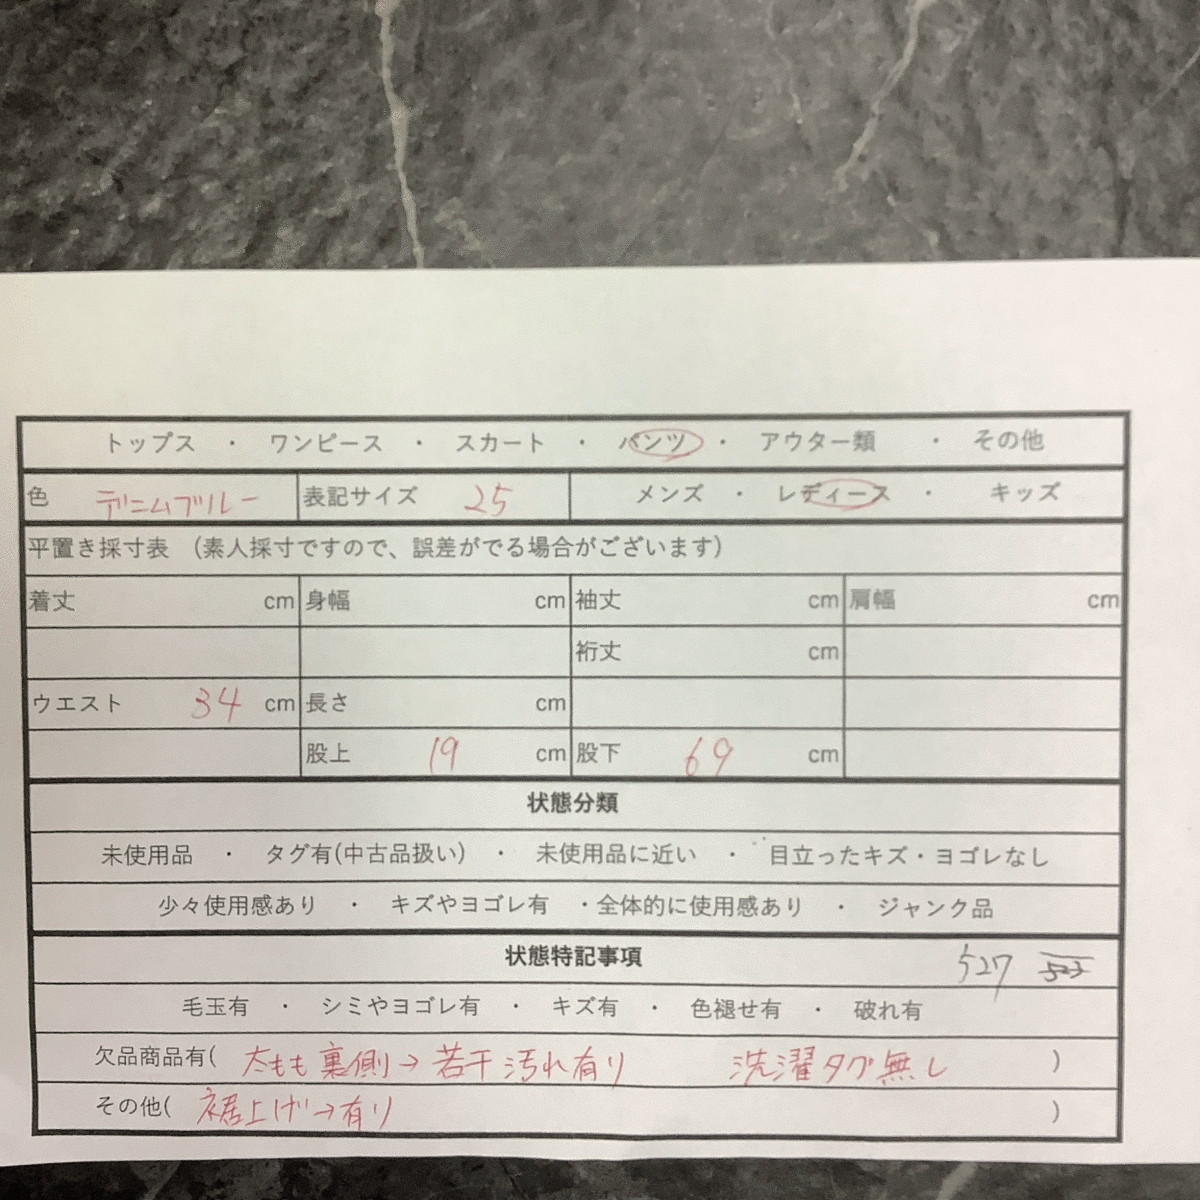 トップス ・ ワンピース ・ スカート ・ パンツ ・ アウター類 ・ その他
色 デニムブルー 表記サイズ 25 メンズ ・ レディース ・ キッズ
平置き採寸表 (素人採寸ですので、誤差がでる場合がございます)
着丈 cm 身幅 cm 袖丈 cm 肩幅 cm
裄丈 cm
ウエスト 34 cm 長さ cm
股上 19 cm 股下 69 cm
状態分類
未使用品 ・ タグ有(中古品扱い) ・ 未使用品に近い ・ 目立ったキズ・ヨゴレなし
少々使用感あり ・ キズやヨゴレ有 ・全体的に使用感あり ・ ジャンク品
状態特記事項 527
毛玉有 ・ シミやヨゴレ有 ・ キズ有 ・ 色褪せ有 ・ 破れ有
欠品商品有( 太もも裏側→若干汚れ有り 洗濯タグ無し )
その他( 裾上げ→有り )